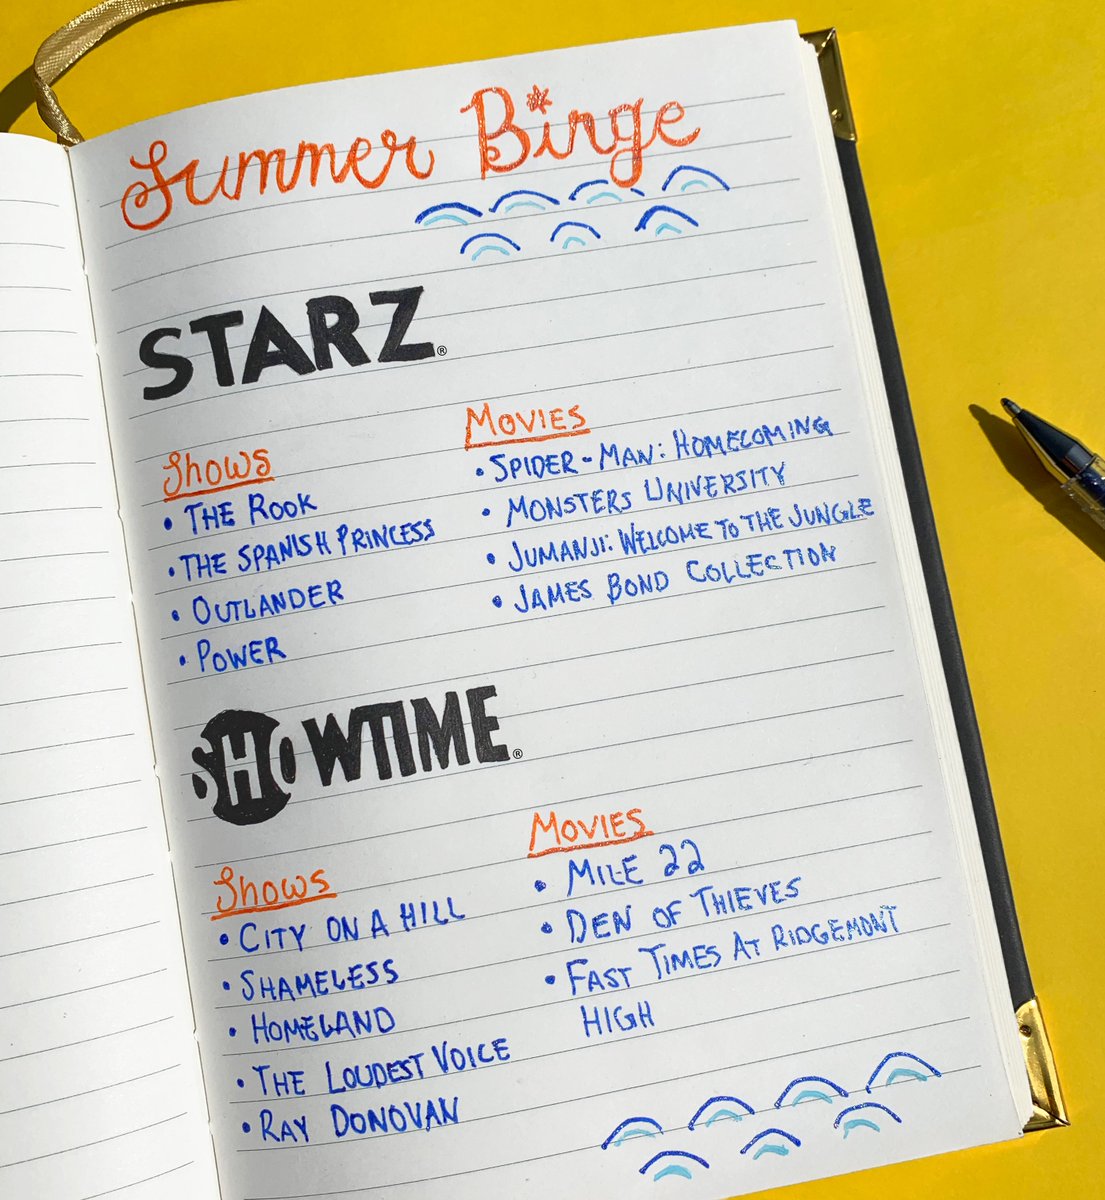 Summer Binge
STARZ®
Shows
• THE ROOK
• THE SPANISH PRINCESS
• OUTLANDER
• POWER
MOVIES
• SPIDER-MAN: HOMECOMING
• MONSTERS UNIVERSITY
• JUMANJI: WELCOME TO THE JUNGLE
• JAMES BOND COLLECTION
SHOWTIME®
Shows
• CITY ON A HILL
• SHAMELESS
• HOMELAND
• THE LOUDEST VOICE
• RAY DONOVAN
MOVIES
• MILE 22
• DEN OF THIEVES
• FAST TIMES AT RIDGEMONT
HIGH